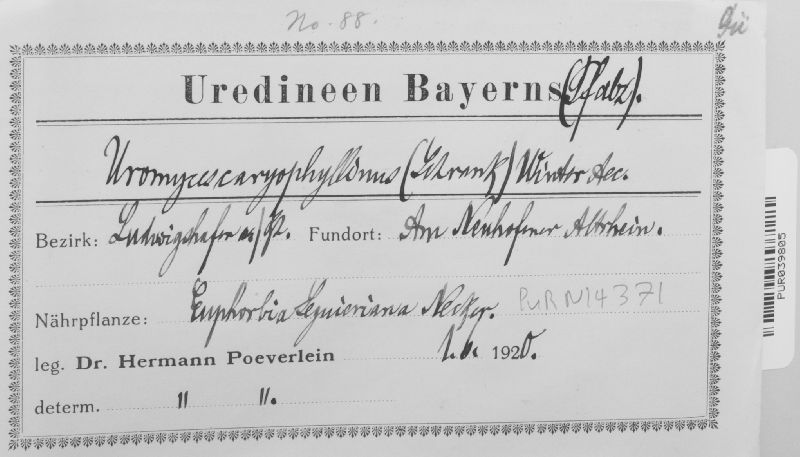 No. 88.
Uredineen Bayerns (Pfalz).
Uromyces caryophyllinus (Schrank) Winter Aec.
Bezirk: Ludwigshafen a./Rh. Fundort: Am Neuhofener Altrhein.
Nährpflanze: Euphorbia Seguieriana Necker. PUR N14371
leg. Dr. Hermann Poeverlein 1920.
determ. " ".
PUR039805